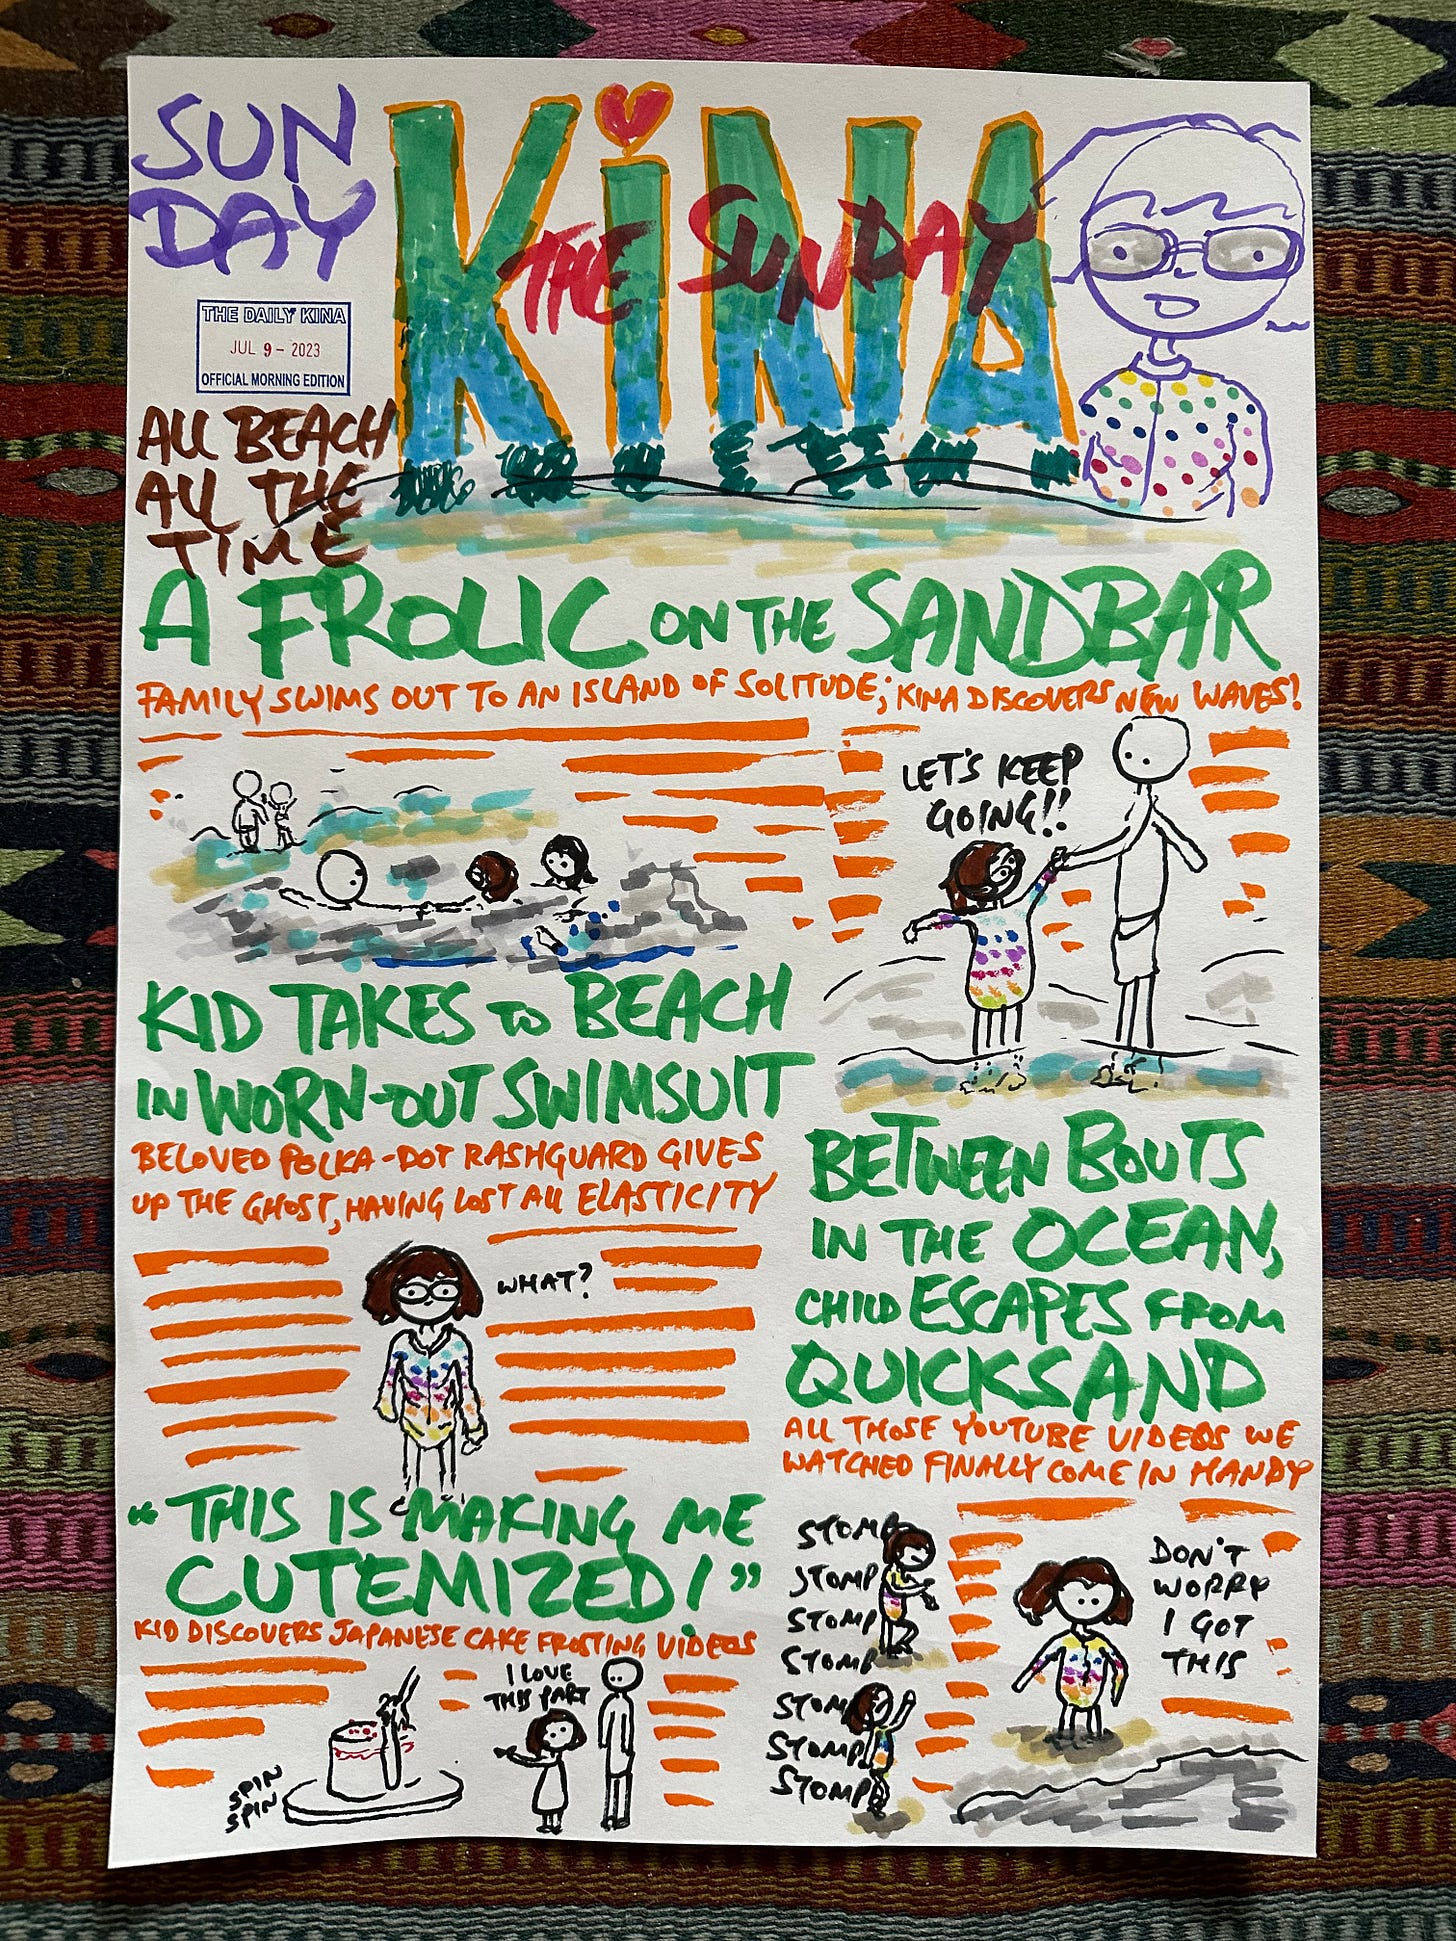 SUN
DAY
KiNA
THE SUNDAY
THE DAILY KINA
JUL 9 - 2023
OFFICIAL MORNING EDITION
ALL BEACH
ALL THE
TIME
A FROLIC ON THE SANDBAR
FAMILY SWIMS OUT TO AN ISLAND OF SOLITUDE; KINA DISCOVERS NEW WAVES!
LET'S KEEP
GOING!!
KID TAKES to BEACH
IN WORN-OUT SWIMSUIT
BELOVED POLKA-DOT RASHGUARD GIVES
UP THE GHOST, HAVING LOST ALL ELASTICITY
WHAT?
BETWEEN BOUTS
IN THE OCEAN,
CHILD ESCAPES FROM
QUICKSAND
ALL THOSE YOUTUBE VIDEOS WE
WATCHED FINALLY COME IN HANDY
STOMP
STOMP
STOMP
STOMP
STOMP
STOMP
STOMP
DON'T
WORRY
I GOT
THIS
"THIS IS MAKING ME
CUTEMIZED!"
KID DISCOVERS JAPANESE CAKE FROSTING VIDEOS
I LOVE
THIS PART
SPIN
SPIN